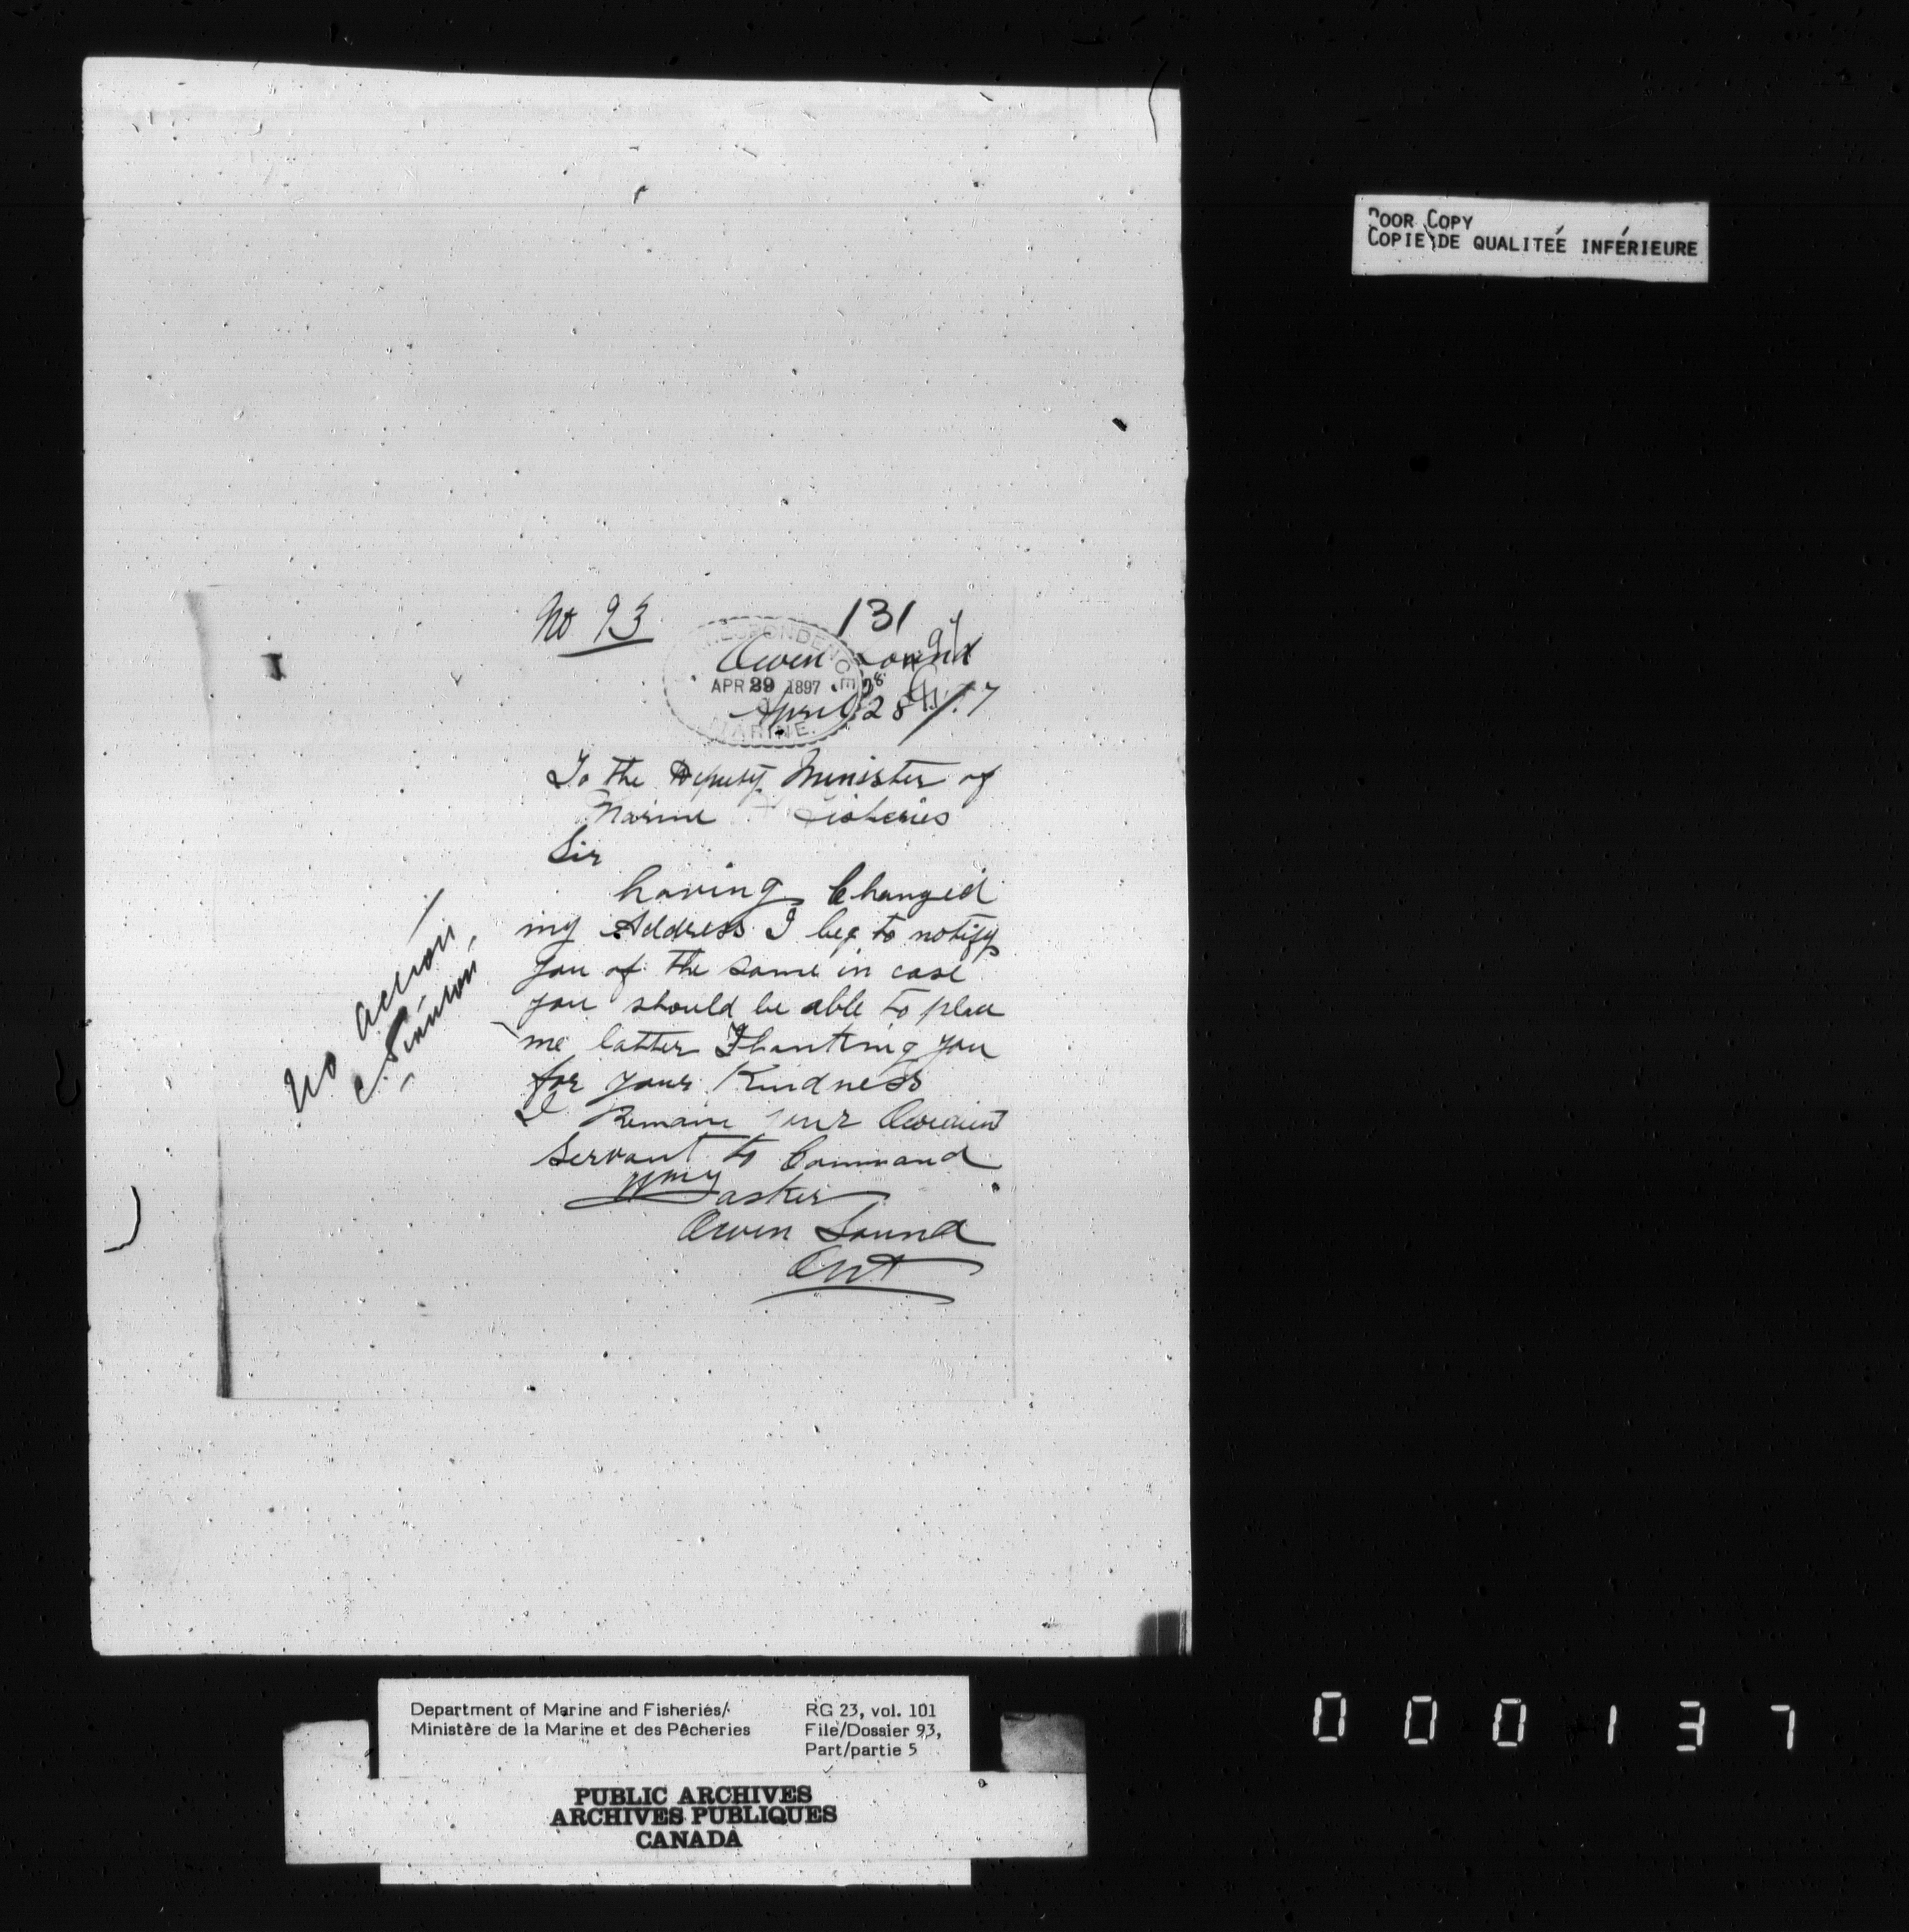 POOR COPY
COPIE DE QUALITEÉ INFÉRIEURE
No 93
131
Owen Sound
CORRESPONDENCE
APR 29 1897
MARINE.
April 28 / 97
To the Deputy Minister of
Marine Fisheries
Sir
having Changed
my Address I beg to notify
you of the same in case
you should be able to place
me latter Thanking you
for your Kindness
I Remain your
servant to Command
Wm Tasker
Owen Sound
Ont
No action
Department of Marine and Fisheries/
Ministère de la Marine et des Pêcheries
RG 23, vol. 101
File/Dossier 93,
Part/partie 5
PUBLIC ARCHIVES
ARCHIVES PUBLIQUES
CANADA
000137